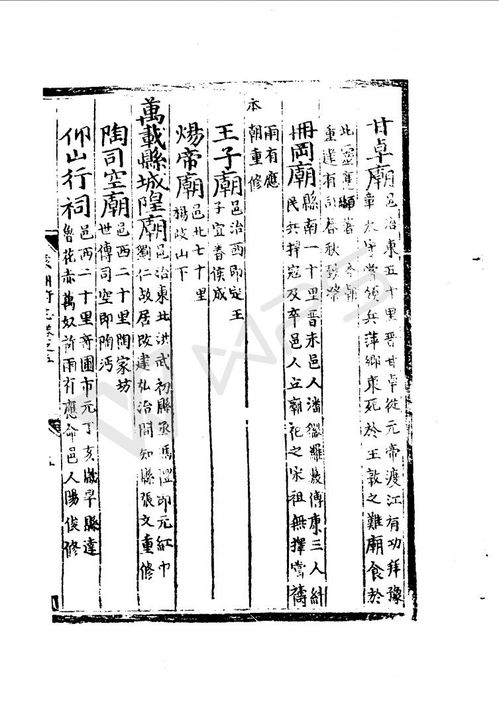 甘卓廟邑治東五十里晋甘卓從元帝渡江有功拜豫
章太守嘗領兵萍鄉東死於王敦之難廟食於
此靈
重建有司春秋致祭
冊岡廟縣南一十里晋末邑人潘
三人糾
民兵捍寇及卒邑人立廟祀之宋祖無擇嘗禱
雨有應
本
朝重修
王子廟邑治西即定王
子宜春侯成
煬帝廟邑北七十里
楊岐山下
萬載縣城隍廟邑治東北洪武初縣丞馮溫即元紅巾
劉仁故居改建弘治間知縣張文重修
陶司空廟邑西二十里陶家坊
世傳司空即陶沔
仰山行祠邑西二十里奇圃市元丁亥歲旱縣達
魯花赤萬奴祈雨有應命邑人陽俊修
袁州府志卷之五